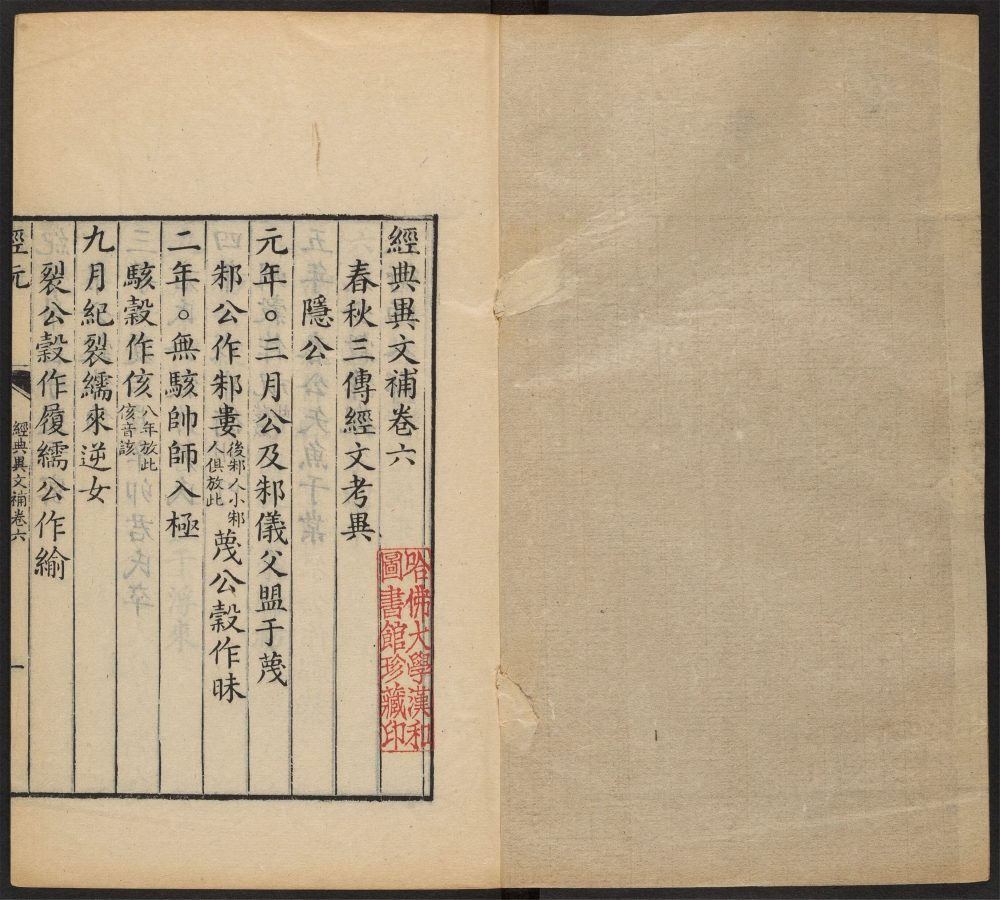 經典異文補卷六
春秋三傳經文考異
隱公
元年○三月公及邾儀父盟于蔑
邾公作邾婁後邾人小邾人俱放此蔑公穀作昧
二年○無駭帥師入極
駭穀作侅八年放此侅音該
九月紀裂繻來逆女
裂公穀作履繻公作緰
經典異文補卷六
一
哈佛大學漢和
圖書館珍藏印